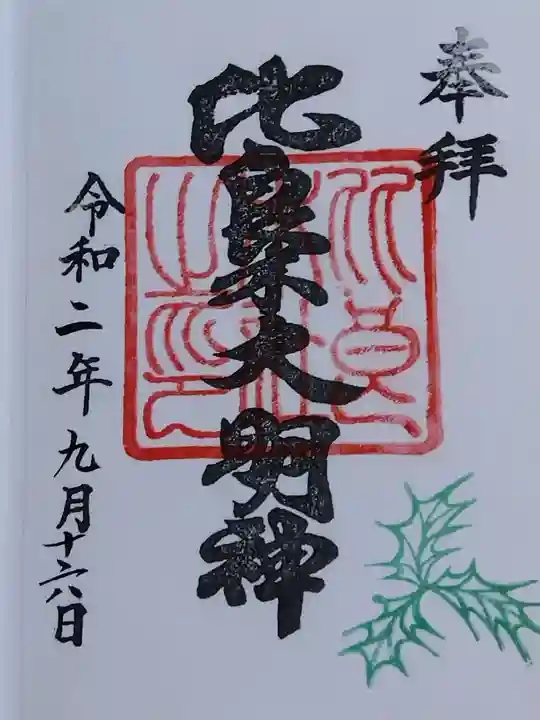 奉拝
比良木大明神
令和二年九月十六日